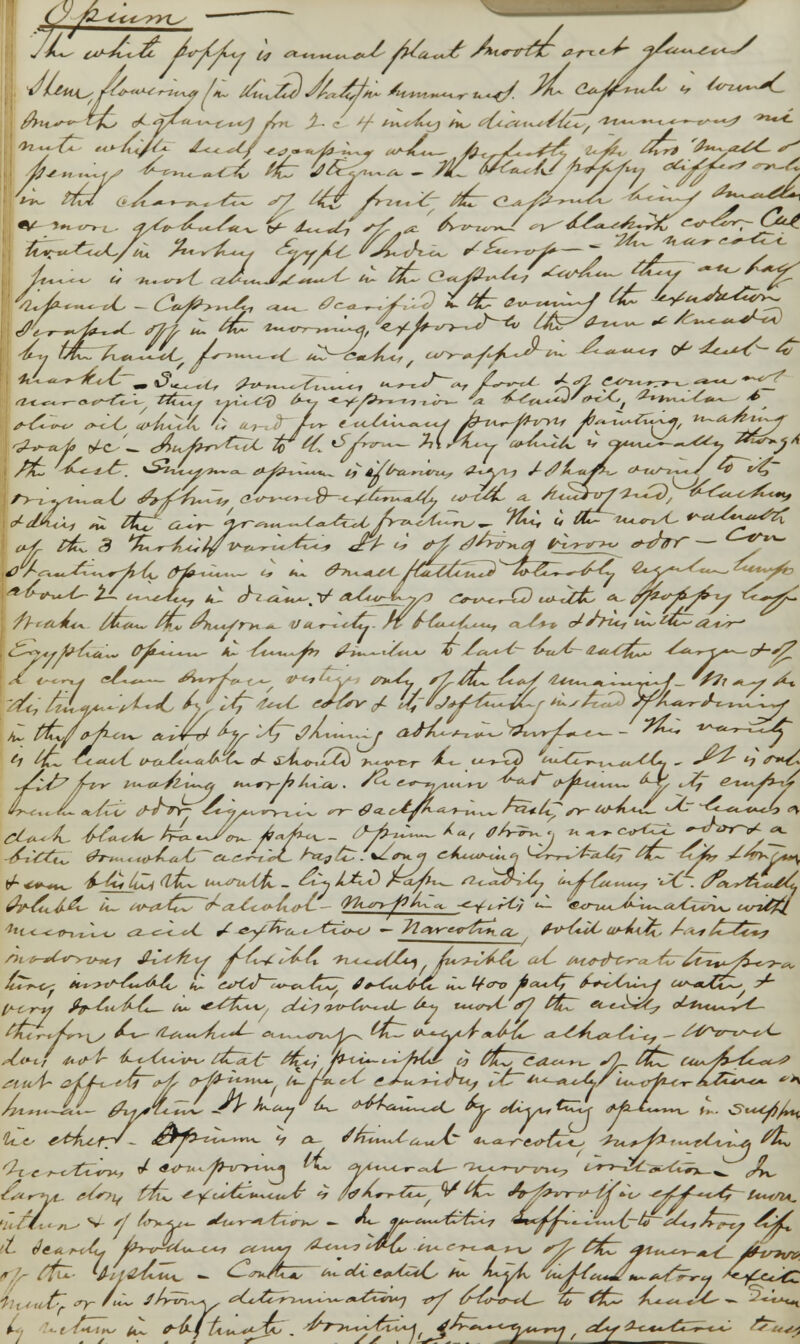 Opium
The white poppy is annual plant smooth erect glaucous
stem, flowering (in United States) in summer mos. The capsule is round
smooth & glaucous fm 2 @ 4 inches in diameter, numerous mi
nute white seeds escaping when perfectly ripe thro' small o
penings beneath the stigma – The black poppy differs only
in the character of the fruit, the capsule being smaller
& more globular & seeds of a brown or blackish color – Cul
tivated in Turkey Egypt India & Europe – The narcotic
juice is most abundant in the capsules & when they are half
ripened – Capsules are scarified in the evening the exudation
scraped off in the morning, exposed to the sun & kneaded
by the hand, formed in cakes, wrapped in leaves & sent to
market – Seeds sometimes used as food & of course are not
narcotic, they yield by expression a bland oil, similar to
olive oil, which is used for culinary purposes painting, making
soap &c – Imported to U.S from Turkey which is generally though
the best. Smyrna opium is of various sizes & shape owing to its
original softness, covered externally with a kind of seed, blackens
& dries in the air granulated fracture – This is the most valuable
of the 3 Turkish varieties It is of strong virous odor – Con
stantinople opium is in small flattened tolerably regular lumps
about 2 inches in diam. & always covered with a poppy leaf
Weaker than the Smyrna variety. It blackens also & dries in the air
Egyptian Opium in lumps similar to last but rather larger & of
a very clean surface, vestiges only of the leaf remaining – May be
distinguished by its red color & its softening instead of hardening
in the open air & by its shining adhesive surface – This variety
is the least valuable & should never be used internally – It is only
fit for making morphia. Recognise bad opium by its empy
reumatic odor, liquorice or saccharine taste, or when it leaves a
dark black trace on paper – Opium has strong narcotic odor & a
bitter somewhat acrid taste. Long chewing irritates the lips & tongue
& even blisters the mouth – lighted taper readily inflames it. Partially
soluble in water & alcohol – Morphia exists in combination with
meconic acid & extractive – Narcotina, solid white tasteless
inodorous silky flexible needles, fusible at moderate tempera
ture, insoluble in cold water, soluble in 400 parts boiling water, &
very soluble in ether, dissolved by most of the acids & must
therefore be ranked among the vegetable alkalies – Wood
does not believe that this principle is the cause of the unpleas
ant effects of opium, in fact considers it nearly inoperative on
human system – It may be obtained by digesting opium in sulphu
ric ether – Opium is a stimulant narcotic, suspending the
secretions & composing the general nervous irritation – In
large dose the excitement is shorter, & the soporific effects more
intense & of longer duration – In quantities sufficient to destroy life
it scarcely produces any sensible increase of the general powers
of the system – Contra indicated in high inflammatory excite
ment, or in strong determinations of blood to the head – Given
by rectum in obstinate vomiting, strangury, dysenteric